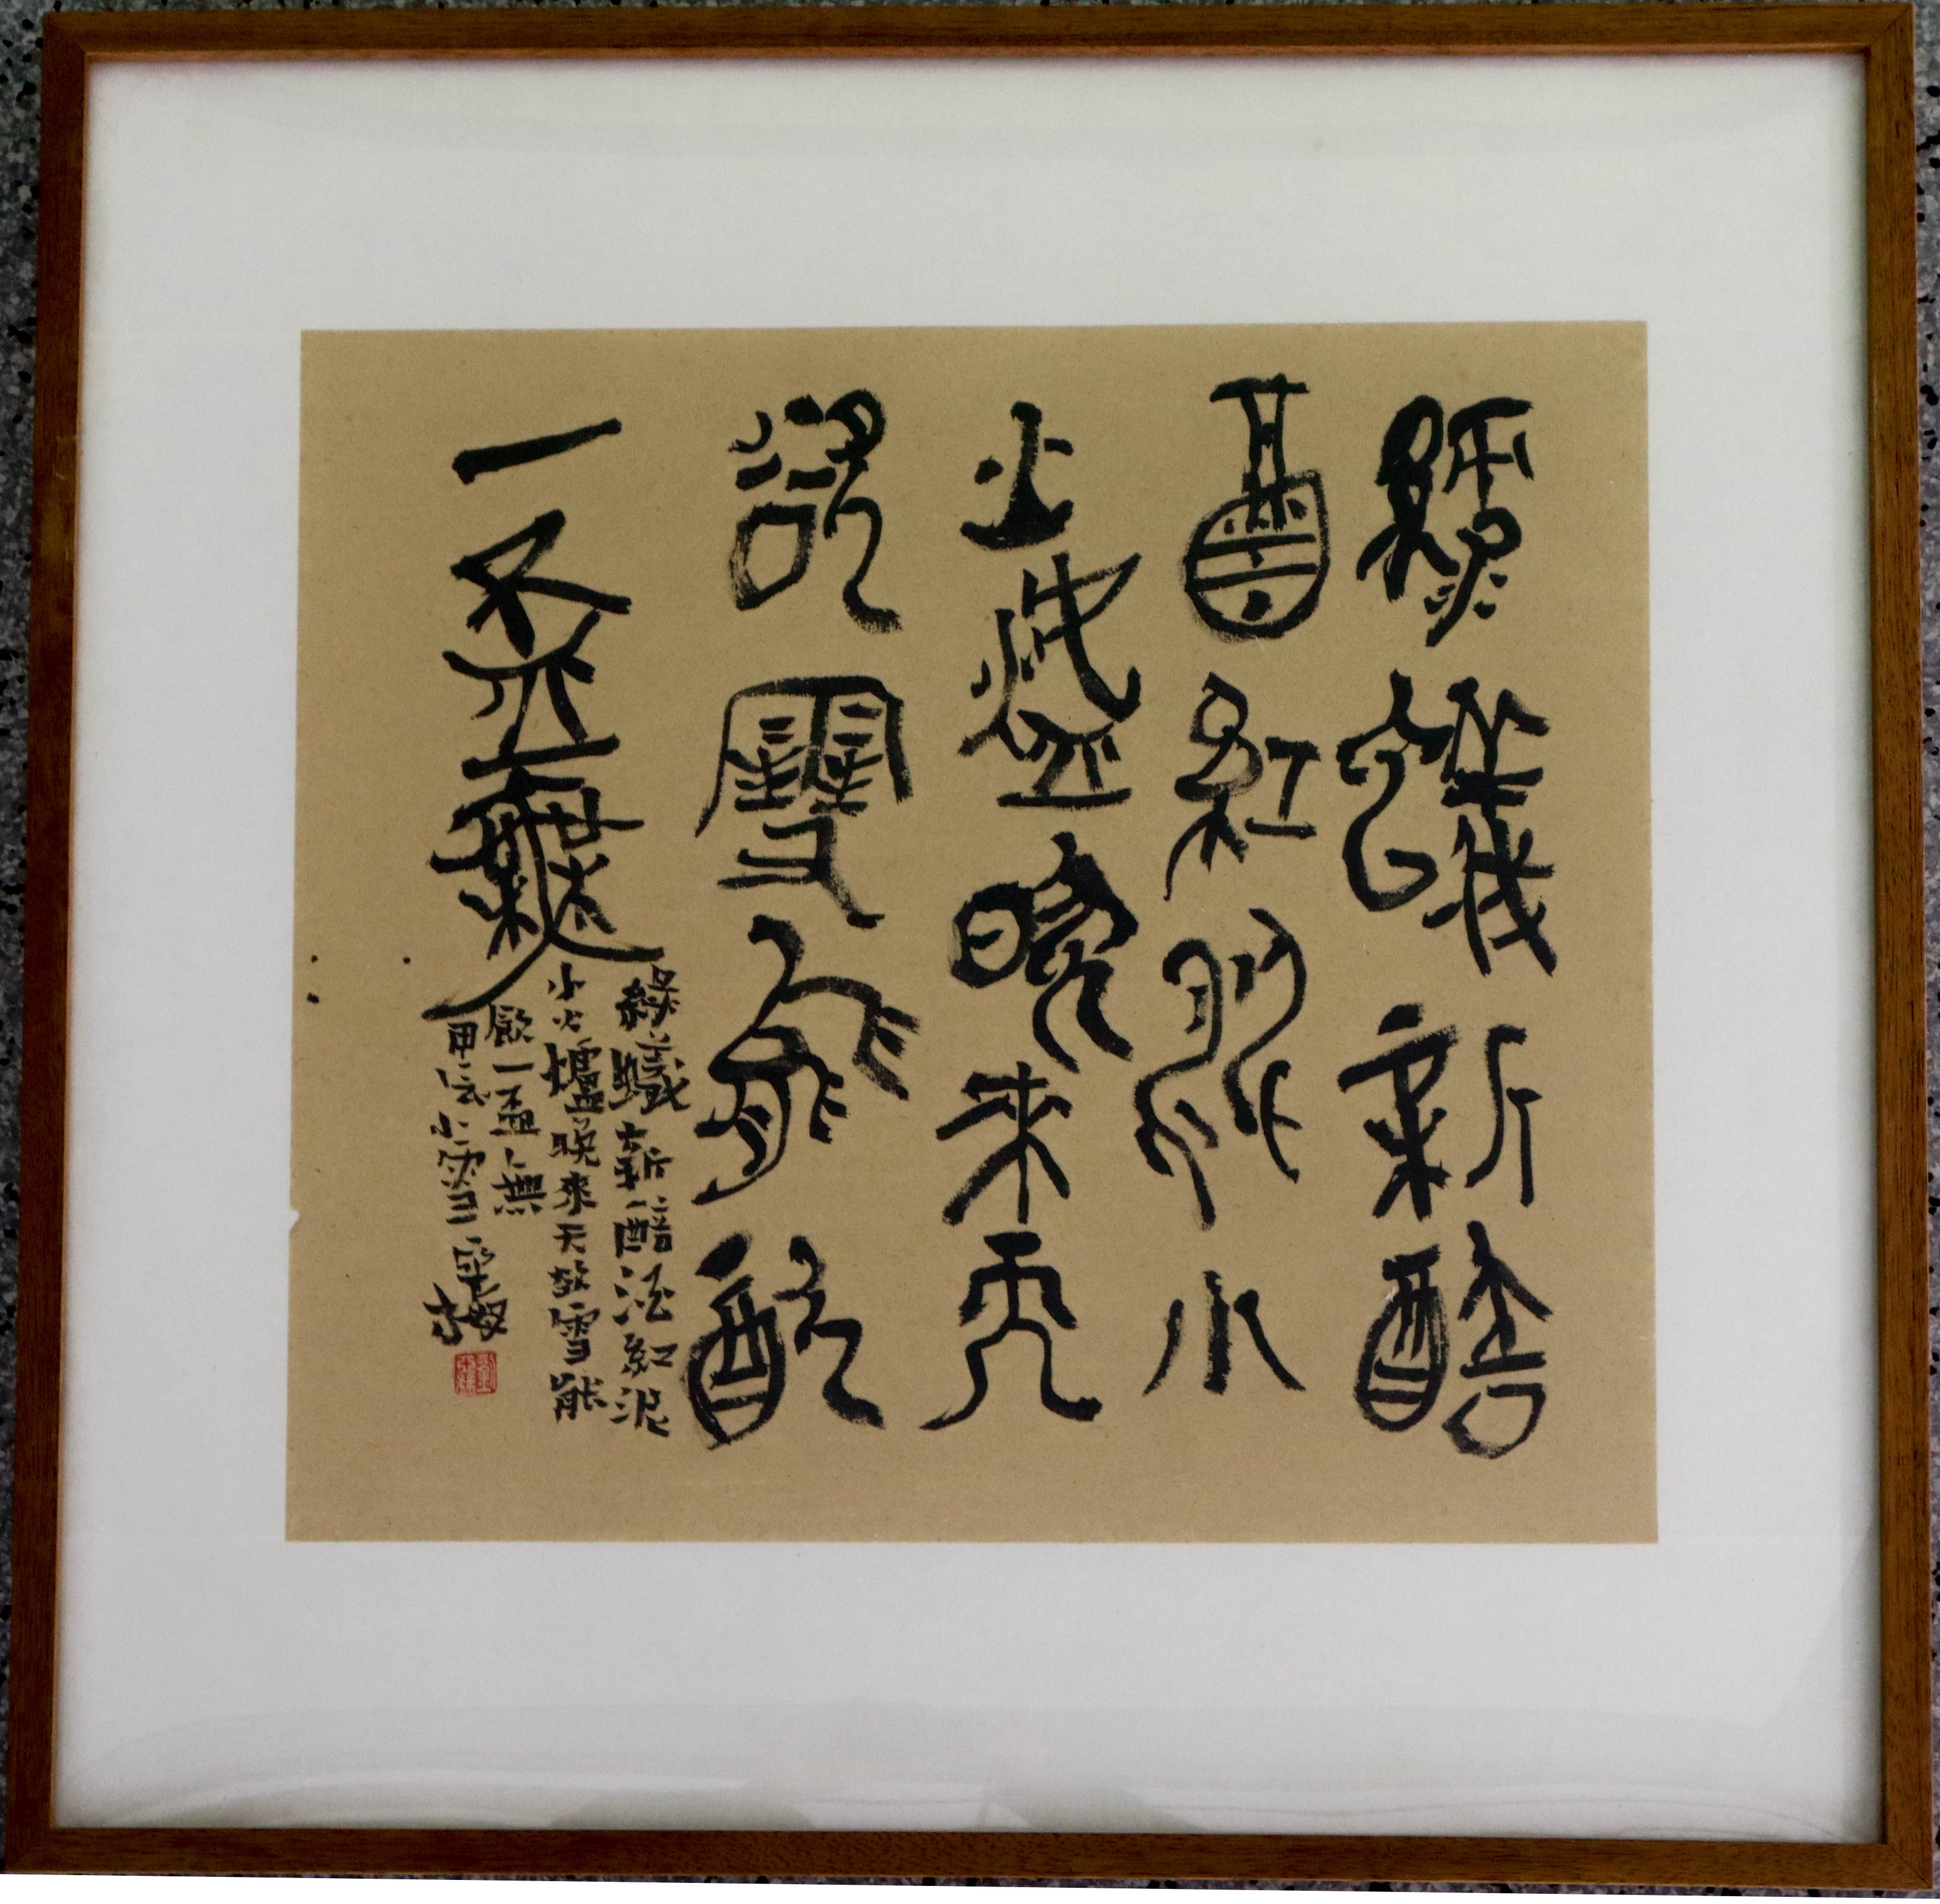 綠蟻新醅
酒紅泥小
火爐晚來天
欲雪能飲
一盃無
綠蟻新醅酒紅泥
小火爐晚來天欲雪能
飲一盃無
甲辰小雪